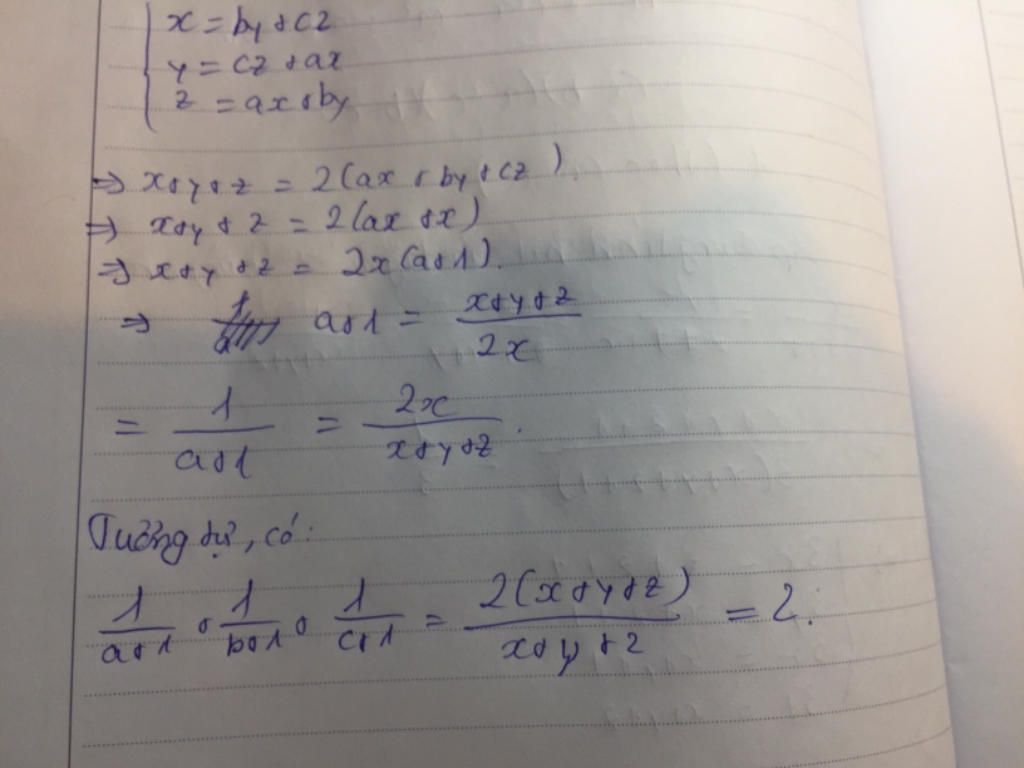 x = by + cz
y = cz + ax
z = ax + by
=> x+y+z = 2(ax + by + cz).
=> x+y+z = 2(ax + x)
=> x+y+z = 2x(a+1).
=> a+1 = (x+y+z)/(2x)
= 1/(a+1) = 2x/(x+y+z).
Tương tự, có:
1/(a+1) + 1/(b+1) + 1/(c+1) = 2(x+y+z)/(x+y+z) = 2.